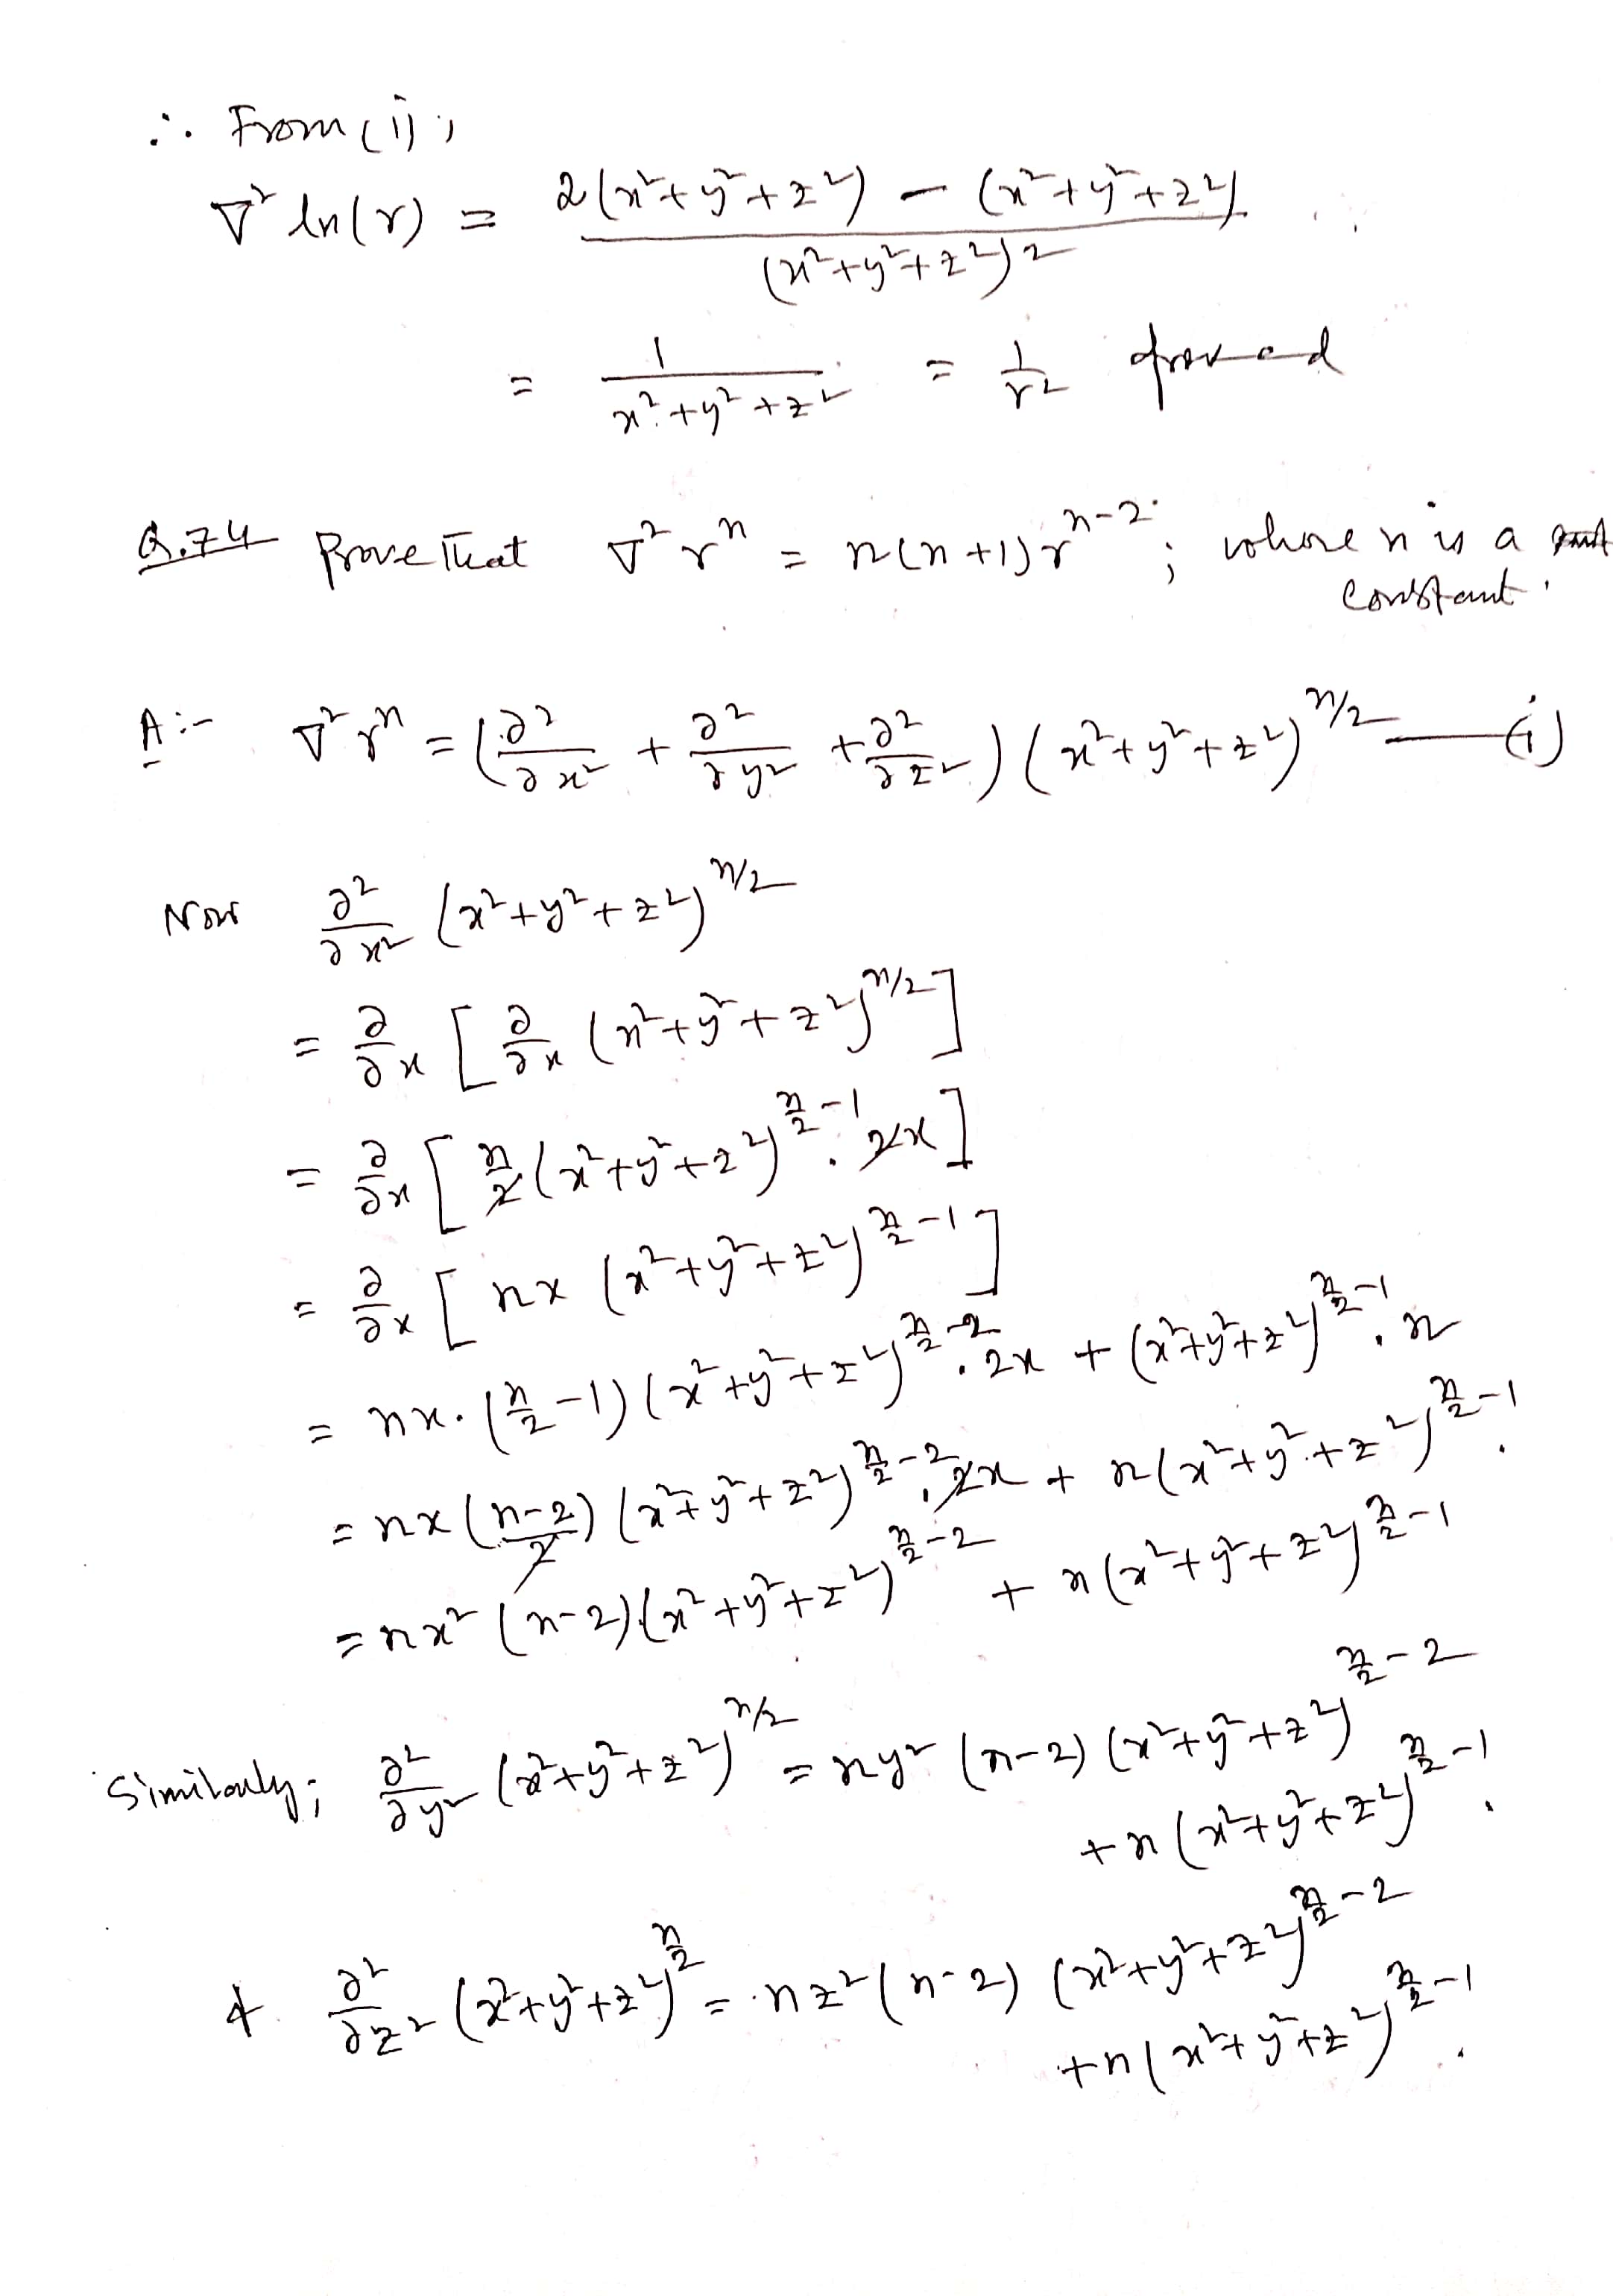 ∴ From (i),
∇² ln(r) = 2(x²+y²+z²) − (x²+y²+z²) / (x²+y²+z²)²
= 1/(x²+y²+z²) = 1/r² proved
Q.74 Prove That ∇² rⁿ = n(n+1) rⁿ⁻² ; where n is a
constant.
A:- ∇² rⁿ = (∂²/∂x² + ∂²/∂y² + ∂²/∂z²) (x²+y²+z²)^(n/2) —— (i)
Now ∂²/∂x² (x²+y²+z²)^(n/2)
= ∂/∂x [ ∂/∂x (x²+y²+z²)^(n/2) ]
= ∂/∂x [ n/2 (x²+y²+z²)^(n/2 −1) . 2x ]
= ∂/∂x [ nx (x²+y²+z²)^(n/2 −1) ]
= nx. (n/2 −1) (x²+y²+z²)^(n/2 −2) . 2x + (x²+y²+z²)^(n/2 −1) . n
= nx ((n−2)/2) (x²+y²+z²)^(n/2 −2) . 2x + n(x²+y²+z²)^(n/2 −1) .
= nx² (n−2) (x²+y²+z²)^(n/2 −2) + n (x²+y²+z²)^(n/2 −1)
Similarly; ∂²/∂y² (x²+y²+z²)^(n/2) = ny² (n−2) (x²+y²+z²)^(n/2 −2)
+ n (x²+y²+z²)^(n/2 −1) .
& ∂²/∂z² (x²+y²+z²)^(n/2) = nz² (n−2) (x²+y²+z²)^(n/2 −2)
+ n (x²+y²+z²)^(n/2 −1) .